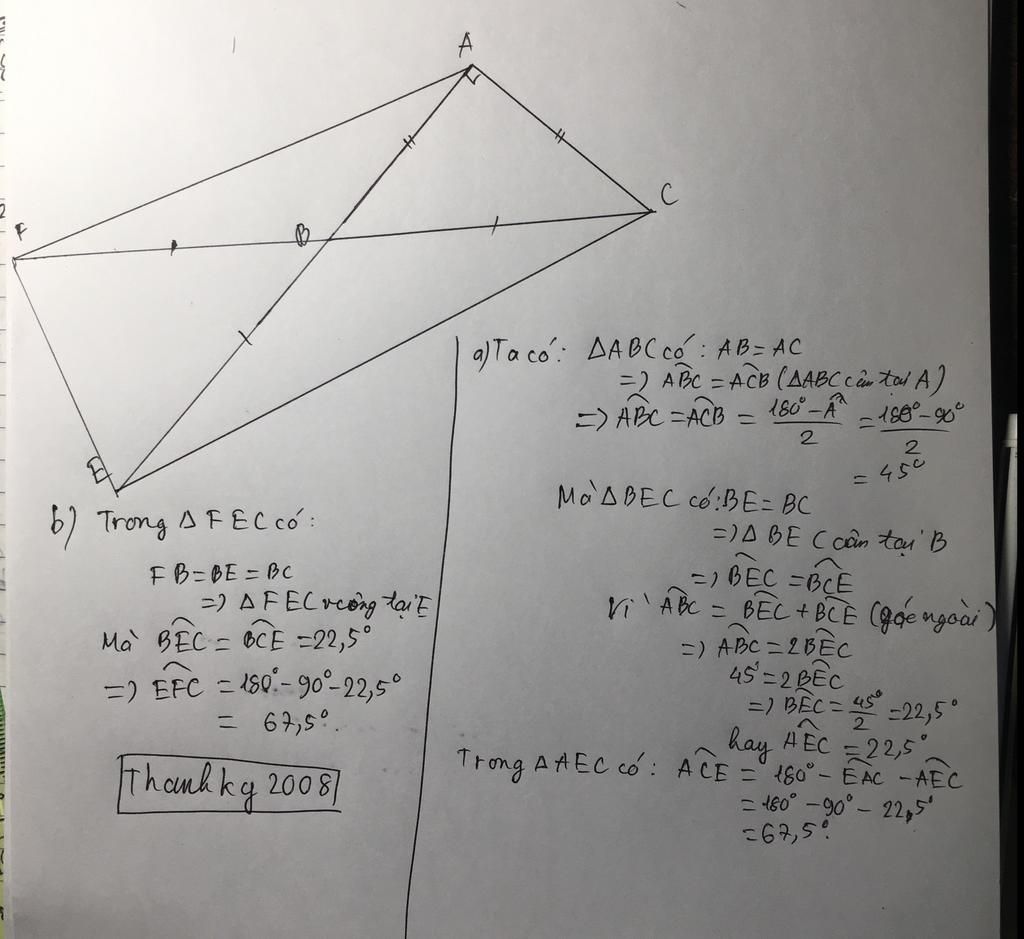 A
F
B
C
E
a) Ta có: ΔABC có: AB = AC
=> \widehat{ABC} = \widehat{ACB} (ΔABC cân tại A)
=> \widehat{ABC} = \widehat{ACB} = \frac{180° - \widehat{A}}{2} = \frac{180° - 90°}{2}
= 45°
Mà ΔBEC có: BE = BC
=> Δ BEC cân tại B
=> \widehat{BEC} = \widehat{BCE}
Vì \widehat{ABC} = \widehat{BEC} + \widehat{BCE} (góc ngoài)
=> \widehat{ABC} = 2\widehat{BEC}
45° = 2\widehat{BEC}
=> \widehat{BEC} = \frac{45°}{2} = 22,5°
hay \widehat{AEC} = 22,5°
Trong ΔAEC có: \widehat{ACE} = 180° - \widehat{EAC} - \widehat{AEC}
= 180° - 90° - 22,5°
= 67,5°.
b) Trong Δ FEC có:
FB = BE = BC
=> Δ FEC vuông tại E
Mà \widehat{BEC} = \widehat{BCE} = 22,5°
=> \widehat{EFC} = 180° - 90° - 22,5°
= 67,5°.
Thanhkg 2008